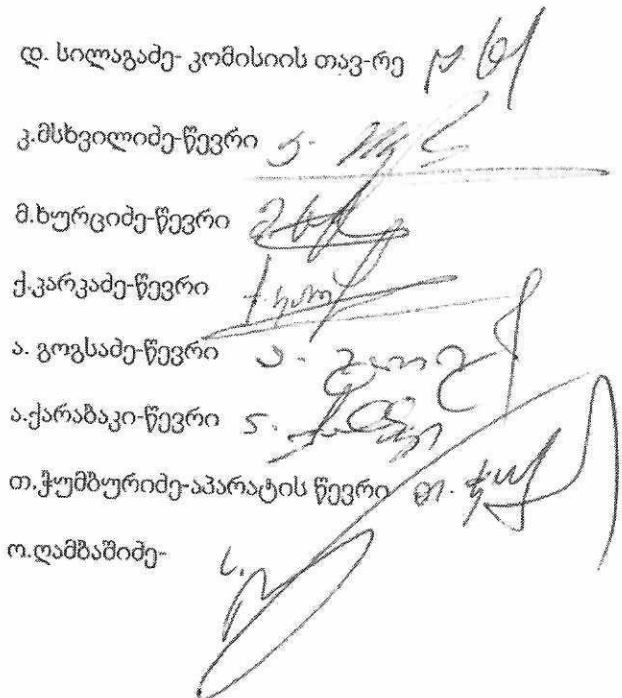 დ. სილაგაძე- კომისიის თავ-რე
კ.მსხვილიძე-წევრი
მ.ხურციძე-წევრი
ქ.კარკაძე-წევრი
ა. გოგსაძე-წევრი
ა.ქარაბაკი-წევრი
თ.ჭუმბურიძე-აპარატის წევრი
ო.ღამბაშიძე-